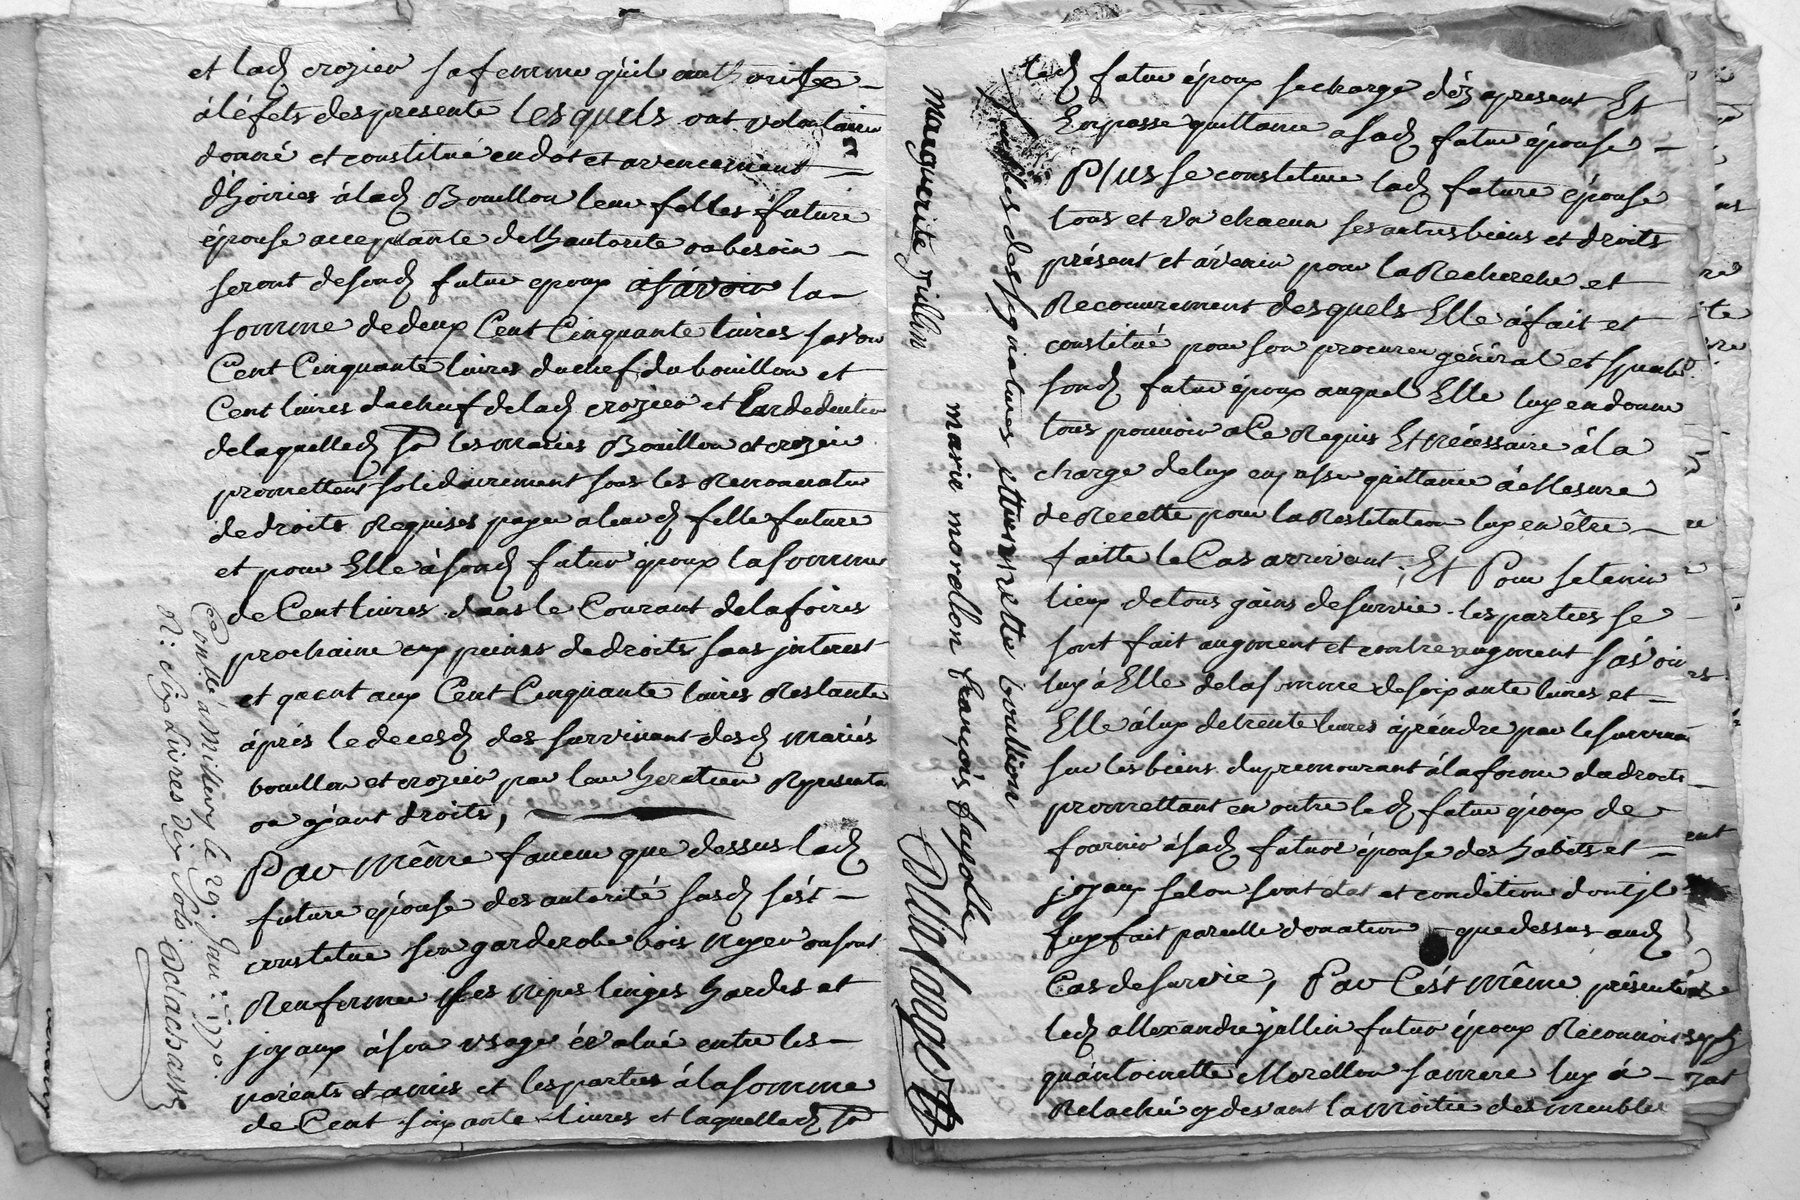 et lad crozier sa femme quil authorise
á léfets des presente les quels ont volontairem
donné et constitué en dot et avencement
d'hoiries à lad Bouillon leur filles future
épouse acceptante de l'hautorité ou besoin
seront de sond futur epoux asavoir la
somme de deux Cent Cinquante livres savoir
Cent Cinquante livres du chef du bouillon et
Cent livres du chef de lad crozier et
de laquelle d les mariés Bouillon et crozier
promettent solidairement sous les Renonciation
de droits Requises payer a leur d fille future
et pour Elle à sond futur époux la somme
de Cent livres dans le Courant de la foires
prochaine aux peines de droits sans jnterest
et qúent aux Cent Cinquante livres Restante
áprés le deces des survivant desd mariés
bouillon et crozier par leur heretier Representa
ou ayant droits,
Par même faveur que dessus lad
future epouse des autorité susd s'ést
constitué son garderobe bois noyer ou sont
Renfermer ses nipes linges hardes et
joyaux á son usage évalué entre les
parents et amis et les parties á la somme
de Cent soixante livres et laquelle d
Contrôlé à le 29 Janv: 1770.
R: six Livres dix Sols
marguerite jullin
marie morellon françois fayolle
des signatures ettiennette bouillion
led futur époux se charge déz apresent Et
En passe quittance a sad future épouse
Plus se constitue lad future épouse
tous et un chacun ses autres biens et droits
présent et ávenir pour la Recherche et
Recouvrement des quels Elle á fait et
constitué pour son procureur général et special
sond futur époux auquel Elle luy en donne
tous pouvoir a Ce Requis Et nécessaire á la
charge de luy en passer quittance á Mesure
de Recette pour la Restitution luy en être
faitte le Cas arrivant; Et Pour setenir
lieux de tous gains de survie les parties se
sont fait augment et contre augment savoir
luy à Elle de la somme de soixante livres et
Elle á luy de trente livres à préndre par le survivan
sur les biens du premourant á la forme de droits
promettant en outre led futur époux de
fournir á sad future épouse des habits et
joyaux selon sont état et condition dont jl
luy fait pareille donation que dessus aud
Cas de survie, Par Cést même présentes
led allexandre jullin futur époux Reconnoit
qu'antoinette Morellon sa mere luy á
Relaché cy devant la moitie des meubles